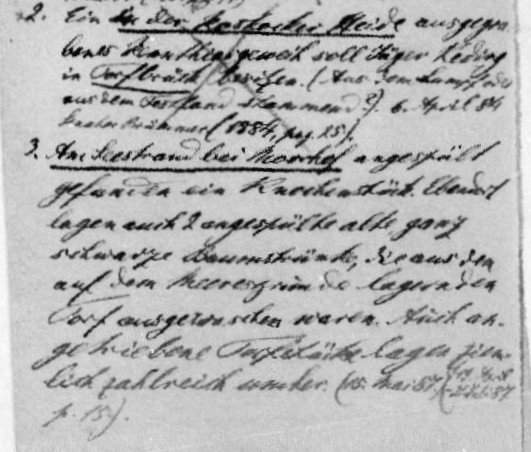 2. Ein in der Rostocker Heide ausgegra-
benes geweih soll Jäger
in Torfbrück besitzen. (Aus dem Sumpf oder
aus dem Festland stammend?). 6. April 84
(1884, pag. 25).
3. Am Seestrand bei angespült
gefunden ein Knochenstück. Ebendort
lagen auch 2 angespülte alte, ganz
schwarze Baumstrünke, die aus dem
auf dem Meeresgrunde lagernden
Torf ausgewaschen waren. Auch an-
getriebene Torfstücke lagen ziem-
lich zahlreich umher. (15. Mai 87)
p. 15).